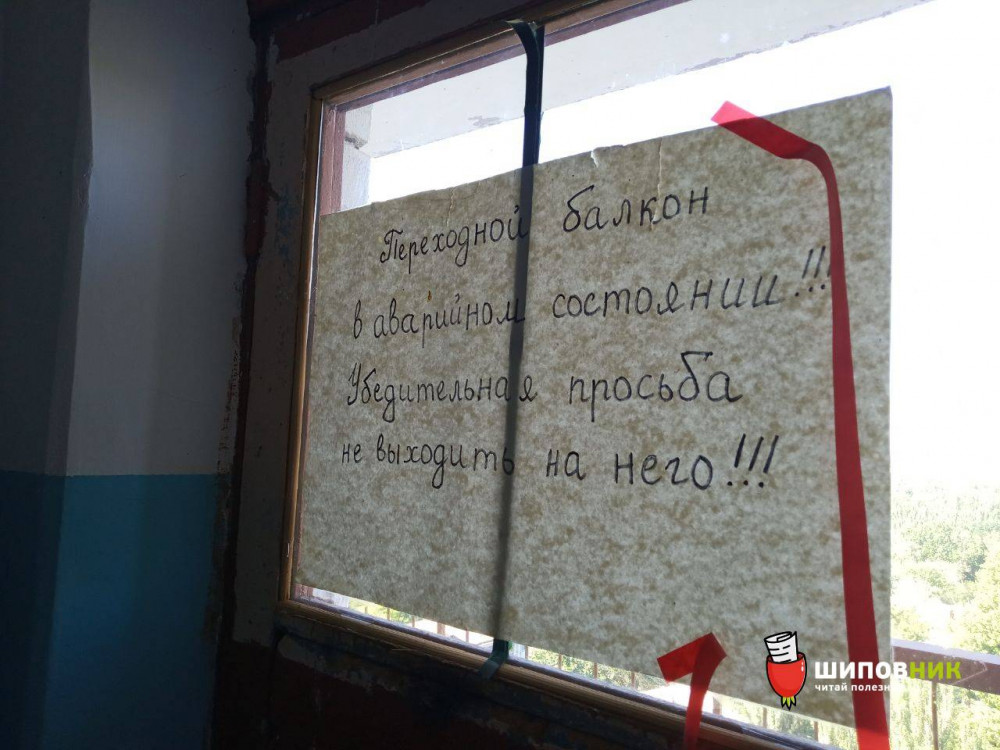 Переходной балкон
в аварийном состоянии!!!
Убедительная просьба
не выходить на него!!!
ШИПОВНИК
читай